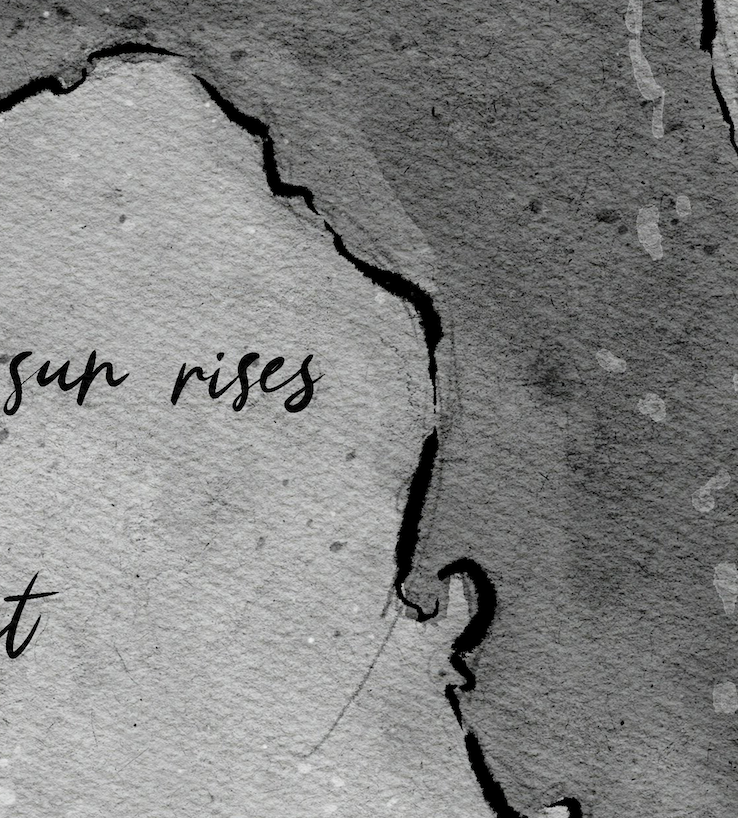 sun rises
t